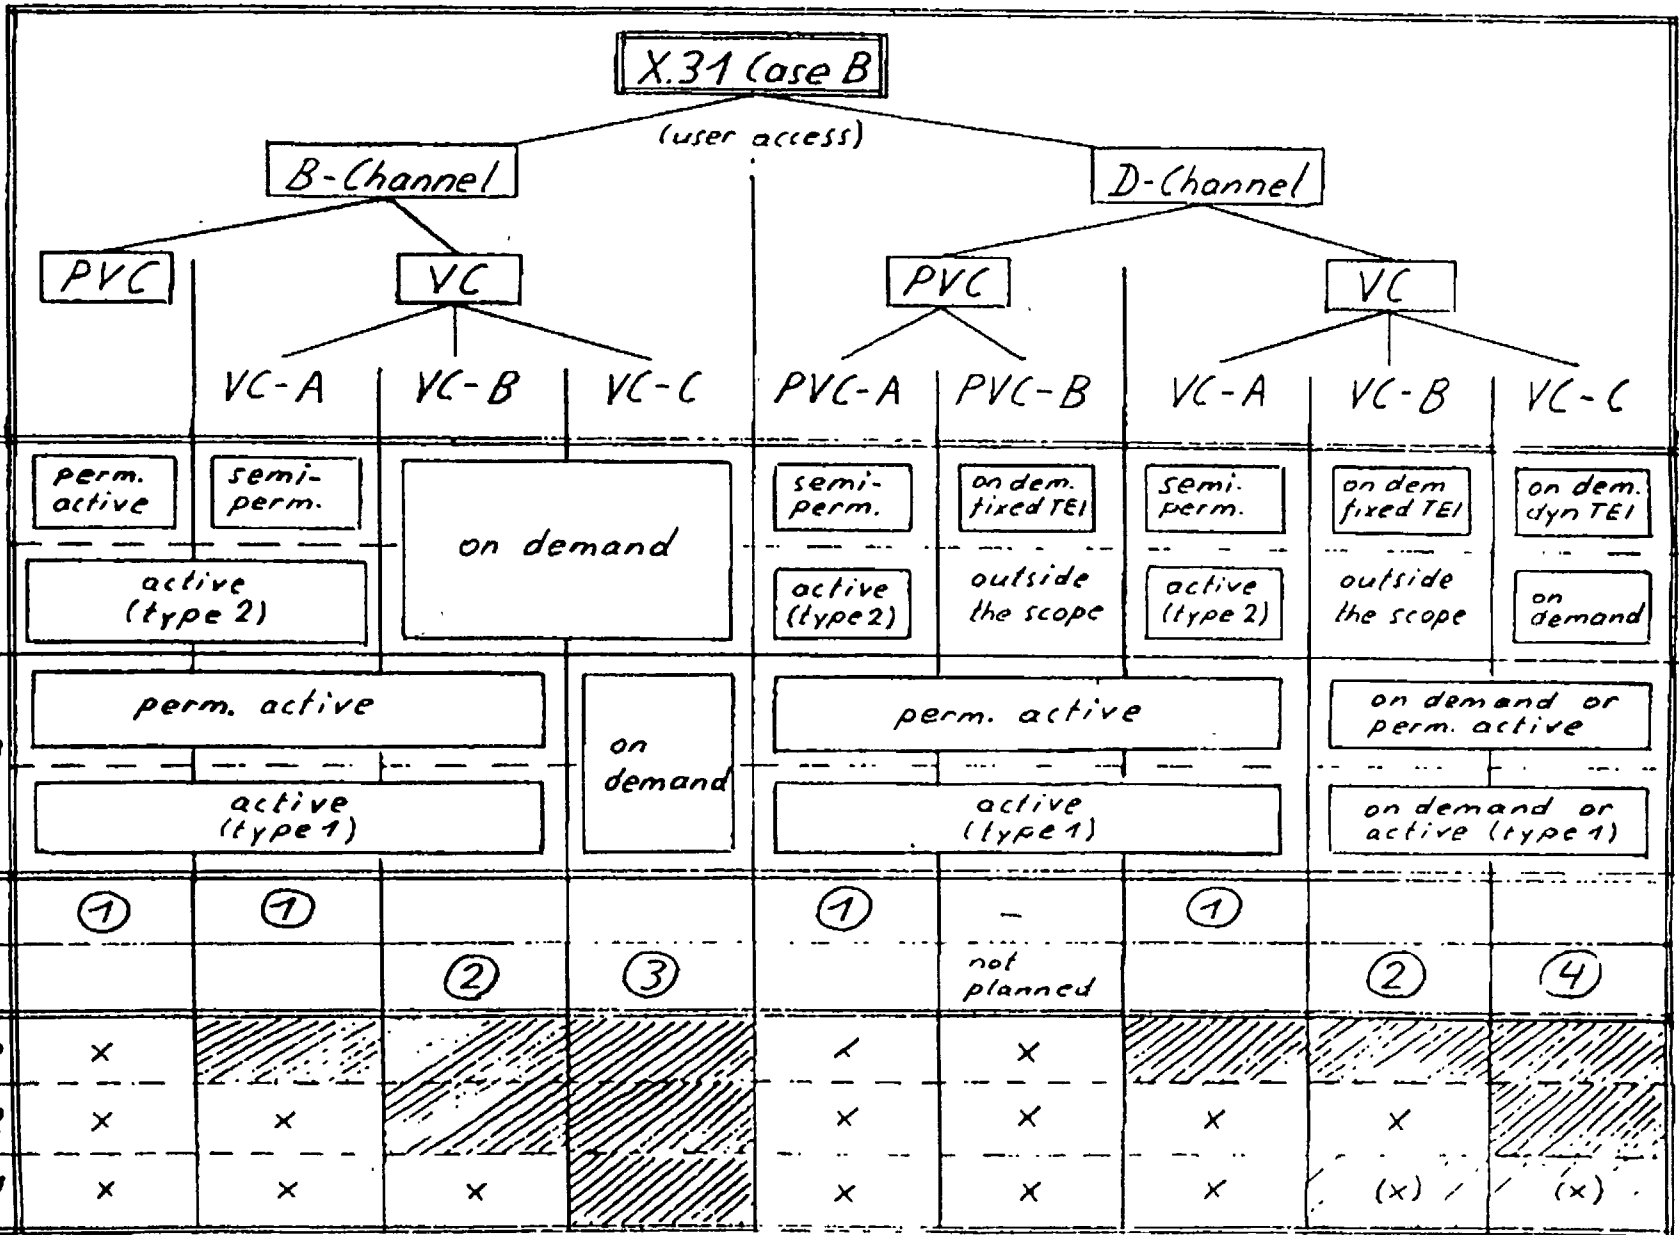 X.31 Case B
(user access)
B-Channel D-Channel
PVC VC PVC VC
VC-A VC-B VC-C PVC-A PVC-B VC-A VC-B VC-C
perm.
active
semi-
perm.
on demand
semi-
perm.
on dem.
fixed TEI
semi-
perm.
on dem
fixed TEI
on dem.
dyn TEI
active
(type 2)
active
(type 2)
outside
the scope
active
(type 2)
outside
the scope
on
demand
perm. active
on
demand
perm. active
on demand or
perm. active
active
(type 1)
active
(type 1)
on demand or
active (type 1)
1 1 1 - 1
2 3 not
planned
2 4
x x x
x x x x x x
x x x x x x (x) (x)